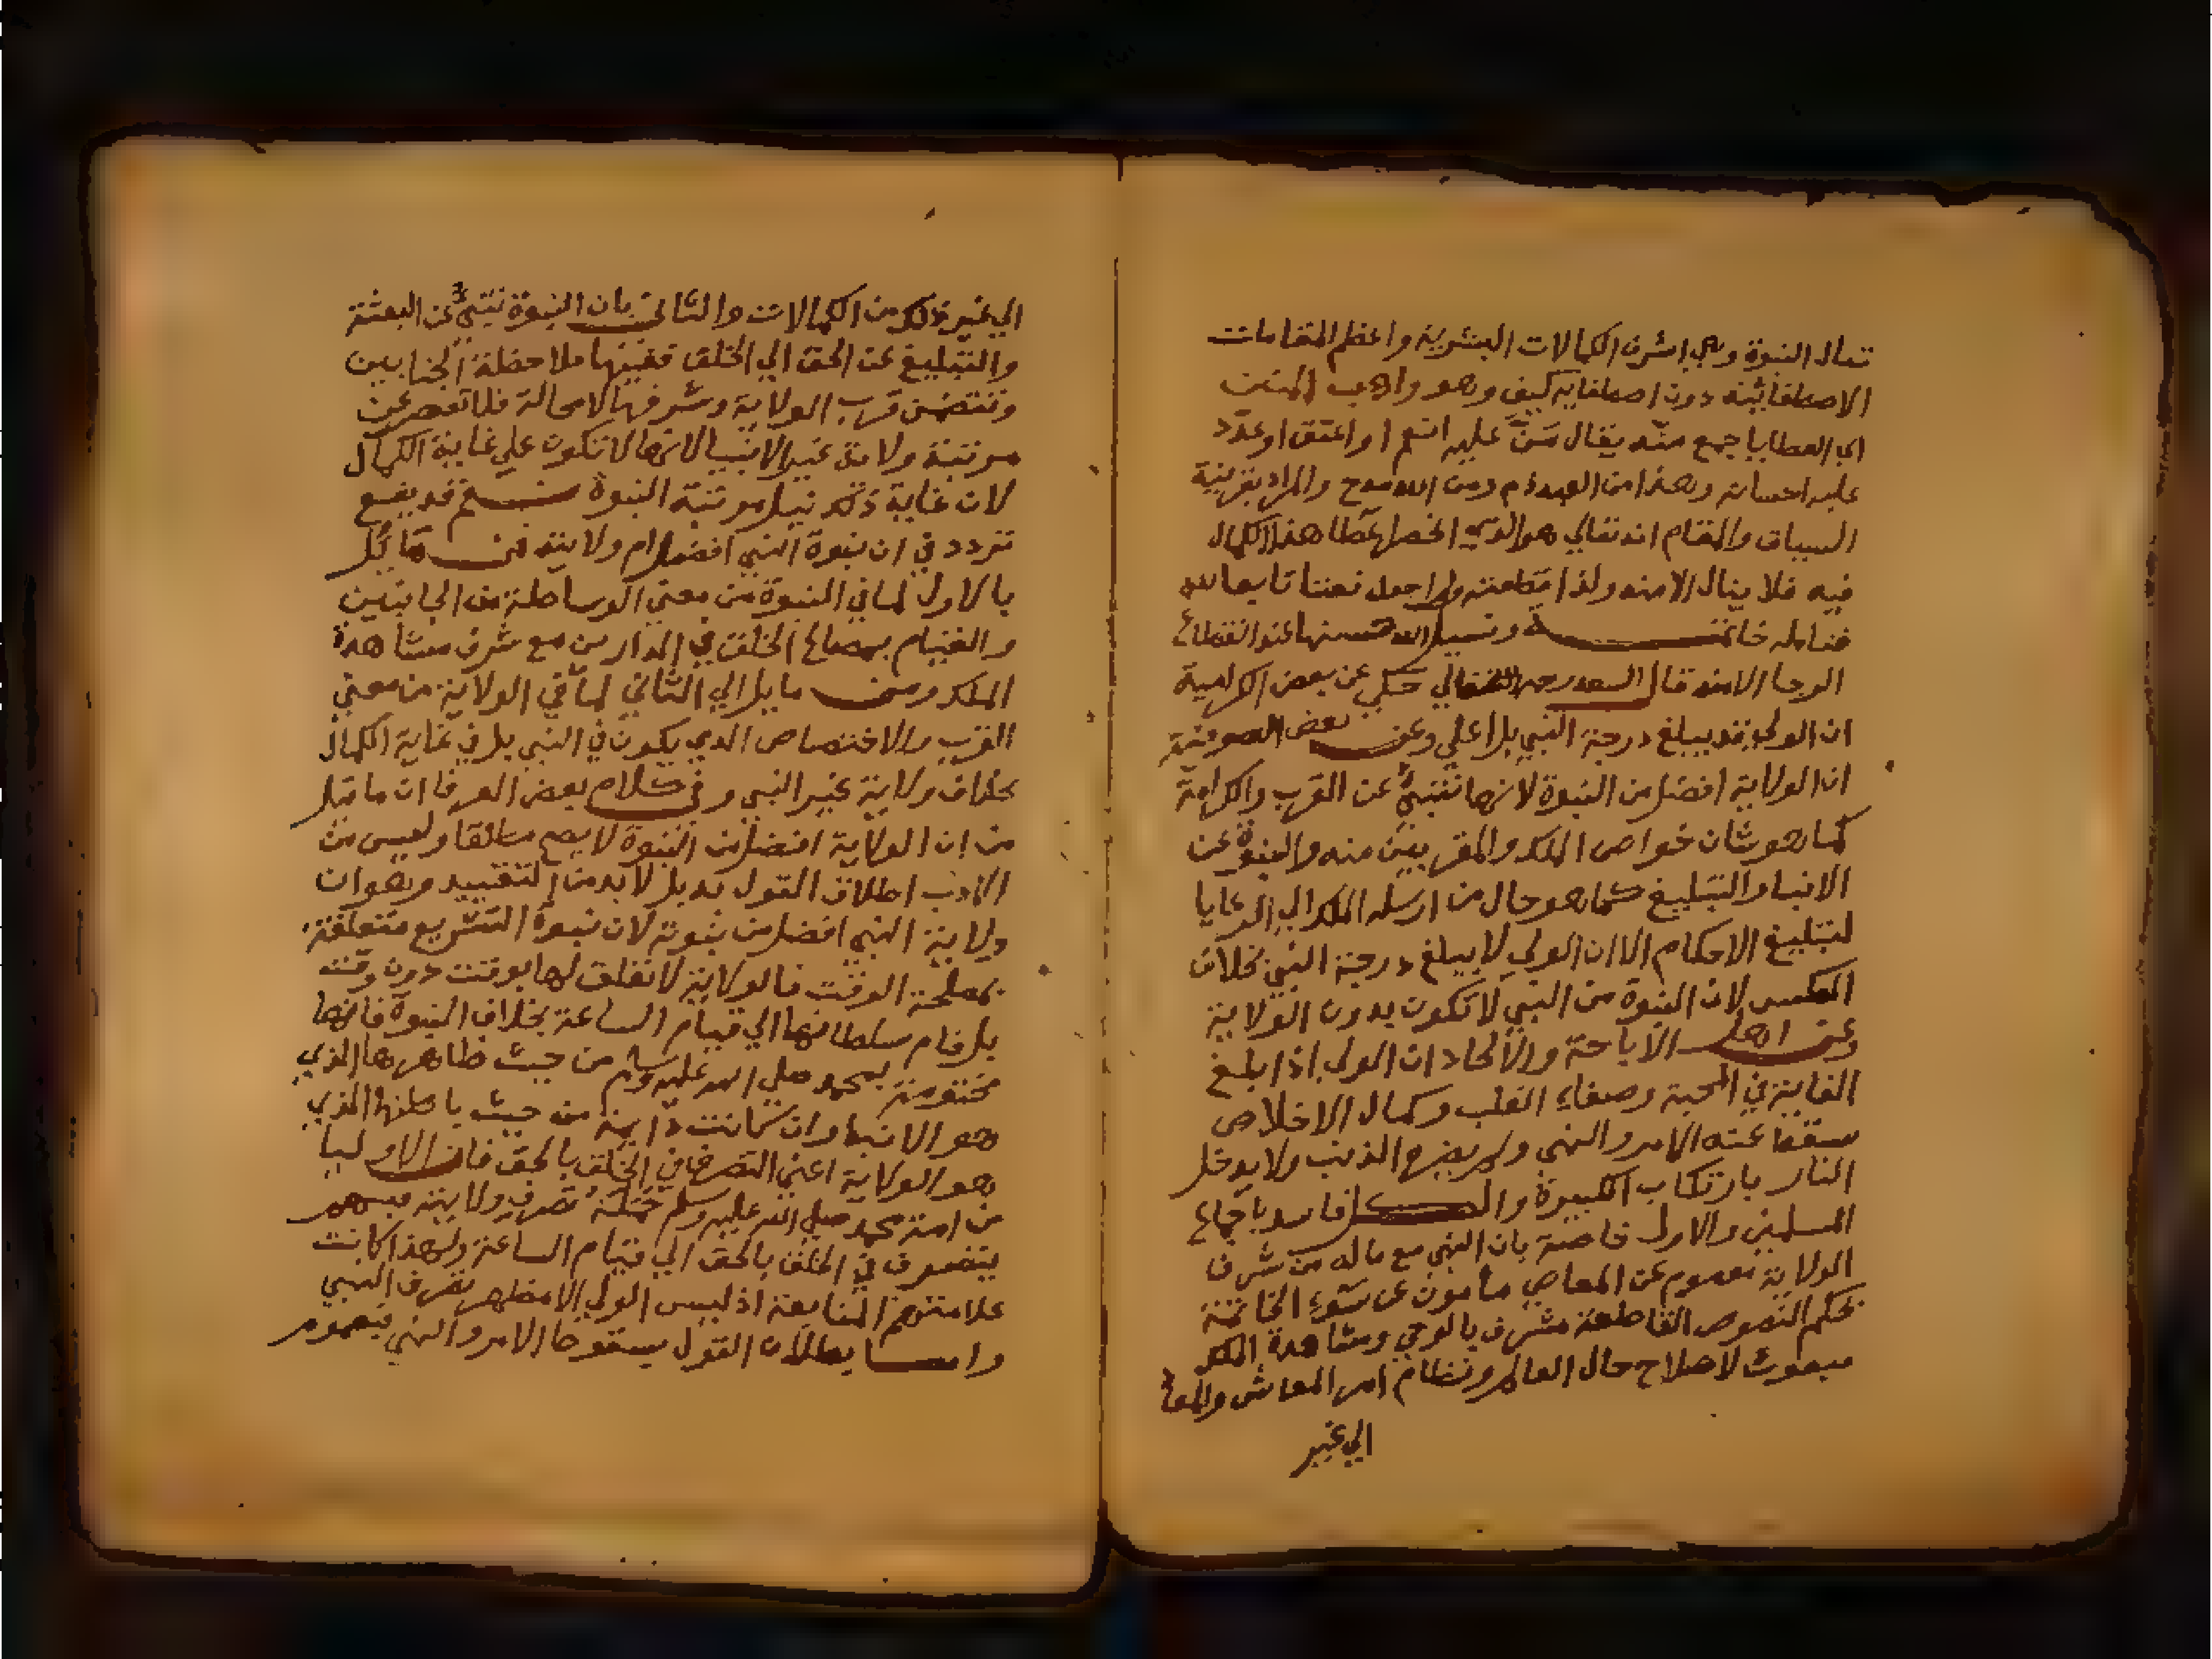 تعالى النبوة وهي اشرف الكمالات البشرية واعظم المقامات
الاصطفائية دون اصطفايه كيف وهو واهب المنن
اي العطايا جمع منّه يقال مَنَّ عليه انعم او اعتق او عدّد
عليه احسانه وهذا من العبد ذم ومن الله مدح والمراد بقرينة
السياق والمقام انه تعالى هو الذي اختص بعطا هذا الكمال
فيه فلا ينال الا منه ولذا قطعته ولم اجعل نعتا تابعا لله
فتامله خاتمة ونسيل الله حسنها عند انقطاع
الرجا الا منه قال السعد رحمه الله تعالي حكي عن بعض الكرامية
ان الولي قد يبلغ درجة النبي بل اعلي وعن بعض الصوفية
ان الولاية افضل من النبوة لانها تنبئ عن القرب والكرامة
كما هو شان خواص الملك والمقربين منه والنبوة عن
الانبا والتبليغ كما هو حال من ارسله الملك الي الرعايا
لتبليغ الاحكام الا ان الولي لا يبلغ درجة النبي بخلاف
العكس لان النبوة من النبي لا تكون بدون الولاية
وعن اهل الاباحة والالحاد ان الولي اذا بلغ
الغاية في المحبة وصفاء القلب وكمال الاخلاص
سقط عنه الامر والنهي ولم يضره الذنب ولا يدخل
النار بارتكاب الكبيرة والكل فاسد باجماع
المسلمين والاول خاصة بان النبي مع ماله من شرف
الولاية معصوم عن المعاصي مأمون عن سوء الخاتمة
بحكم النصوص القاطعة مشرف بالوحي ومشاهدة الملك
مبعوث لاصلاح حال العالم ونظام امر المعاش والمعا
الي غير
الي غير ذلك من الكمالات والثاني بان النبوة تنبئ عن البعثة
والتبليغ عن الحق الي الخلق ففيها ملاحظة الجنابين
وتتضمن قرب الولاية وشرفها لا محالة فلا تقصر عن
مرتبة ولاية غير الانبيا لانها لا تكون علي غاية الكمال
لان غاية ذلك نيل مرتبة النبوة نعم قد يقع
تردد في ان نبوة النبي افضل ام ولايته فمن قائل
بالاول لما في النبوة من معني الوساطة من الجانبين
والقيام بمصالح الخلق في الدارين مع شرف مشاهدة
الملك ومن مايل الي الثاني لما في الولاية من معني
القرب والاختصاص الذي يكون في النبي بل في غاية الكمال
بخلاف ولاية غير النبي وفي كلام بعض العرفا ان ما قيل
من ان الولاية افضل من النبوة لا يصح مطلقا وليس من
الادب اطلاق القول به بل لا بد من التقييد وهو ان
ولاية النبي افضل من نبوته لان نبوة التشريع متعلقة
بمصلحة الوقت فالولاية لا تعلق لها بوقت دون وقت
بل قام سلطانها الي قيام الساعة بخلاف النبوة فانها
مختومة بمحمد صلي الله عليه وسلم من حيث ظاهرها الذي
هو الانبا وان كانت دايمة من حيث باطنها الذي
هو الولاية اعني التصرف في الخلق بالحق فان الاوليا
من امة محمد صلي الله عليه وسلم حملة تصرف ولايته فبهم
يتصرف في الخلق بالحق الي قيام الساعة ولهذا كانت
علامتهم المتابعة اذ ليس الولي الا مظهر تصرف النبي
واما بطلان القول بسقوط الامر والنهي فبعموم